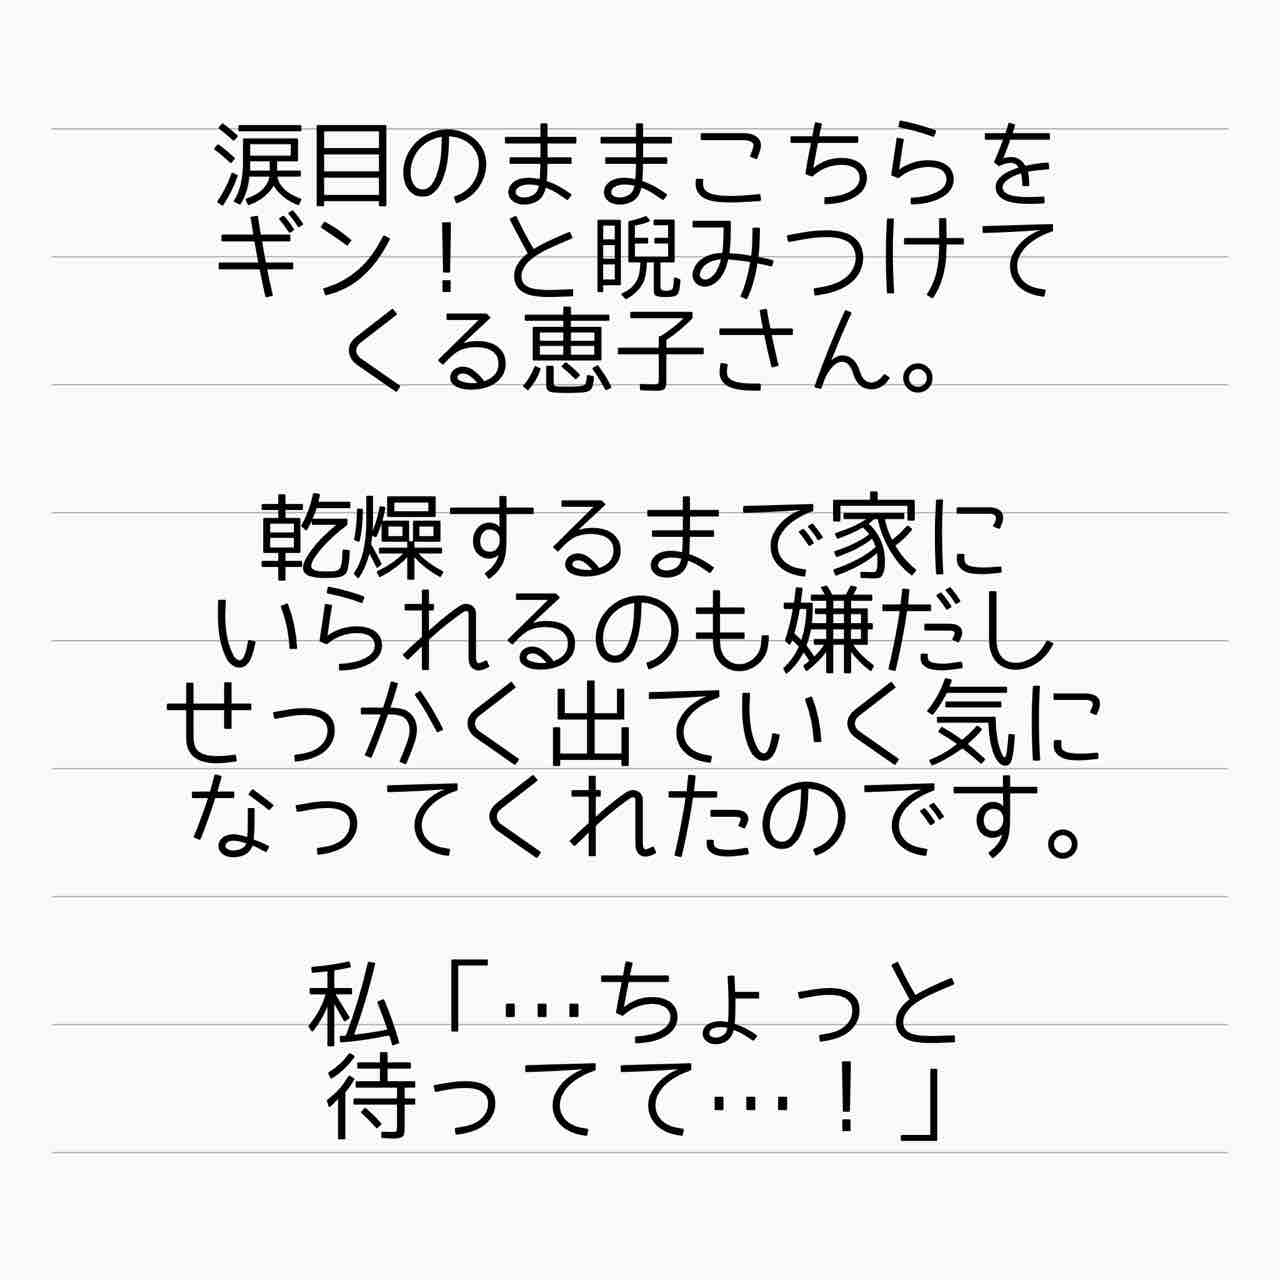 涙目のままこちらを
ギン！と睨みつけて
くる恵子さん。
乾燥するまで家に
いられるのも嫌だし
せっかく出ていく気に
なってくれたのです。
私「…ちょっと
待ってて…！」